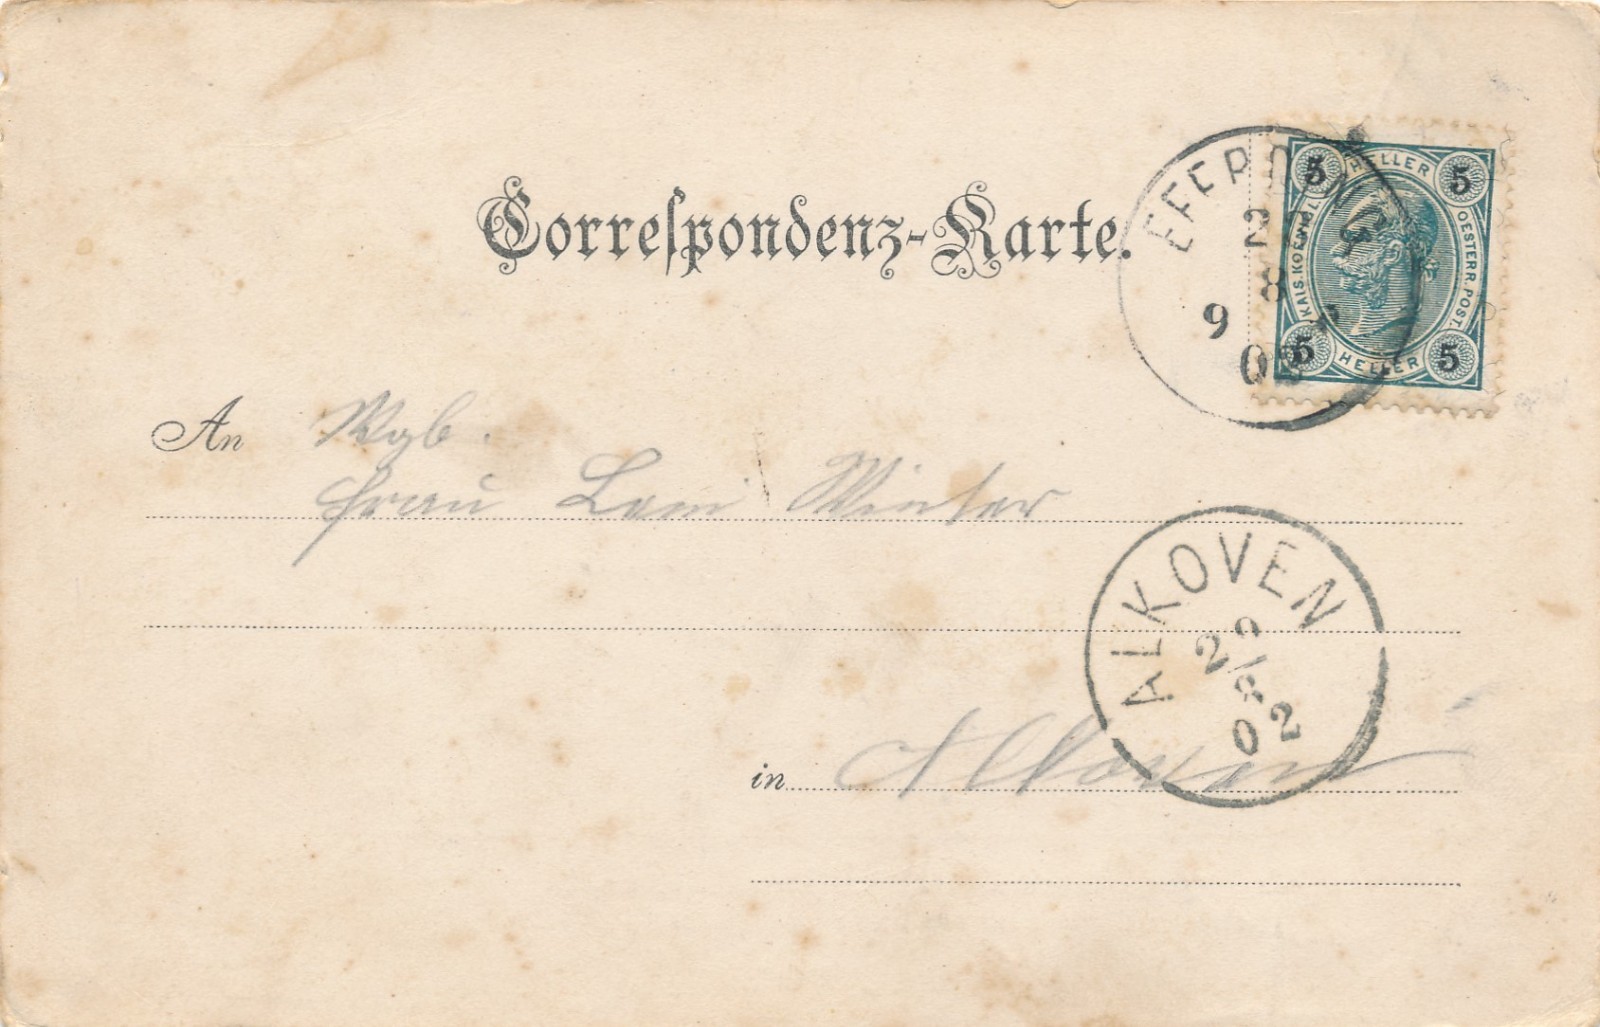 Correspondenz-Karte.
EFERDING
8
9
02
5 HELLER 5
KAIS. KOENIGL.
OESTERR. POST.
5 HELLER 5
An Wgb.
Frau Leni Winter
ALKOVEN
2 9/8
02
in Alkoven